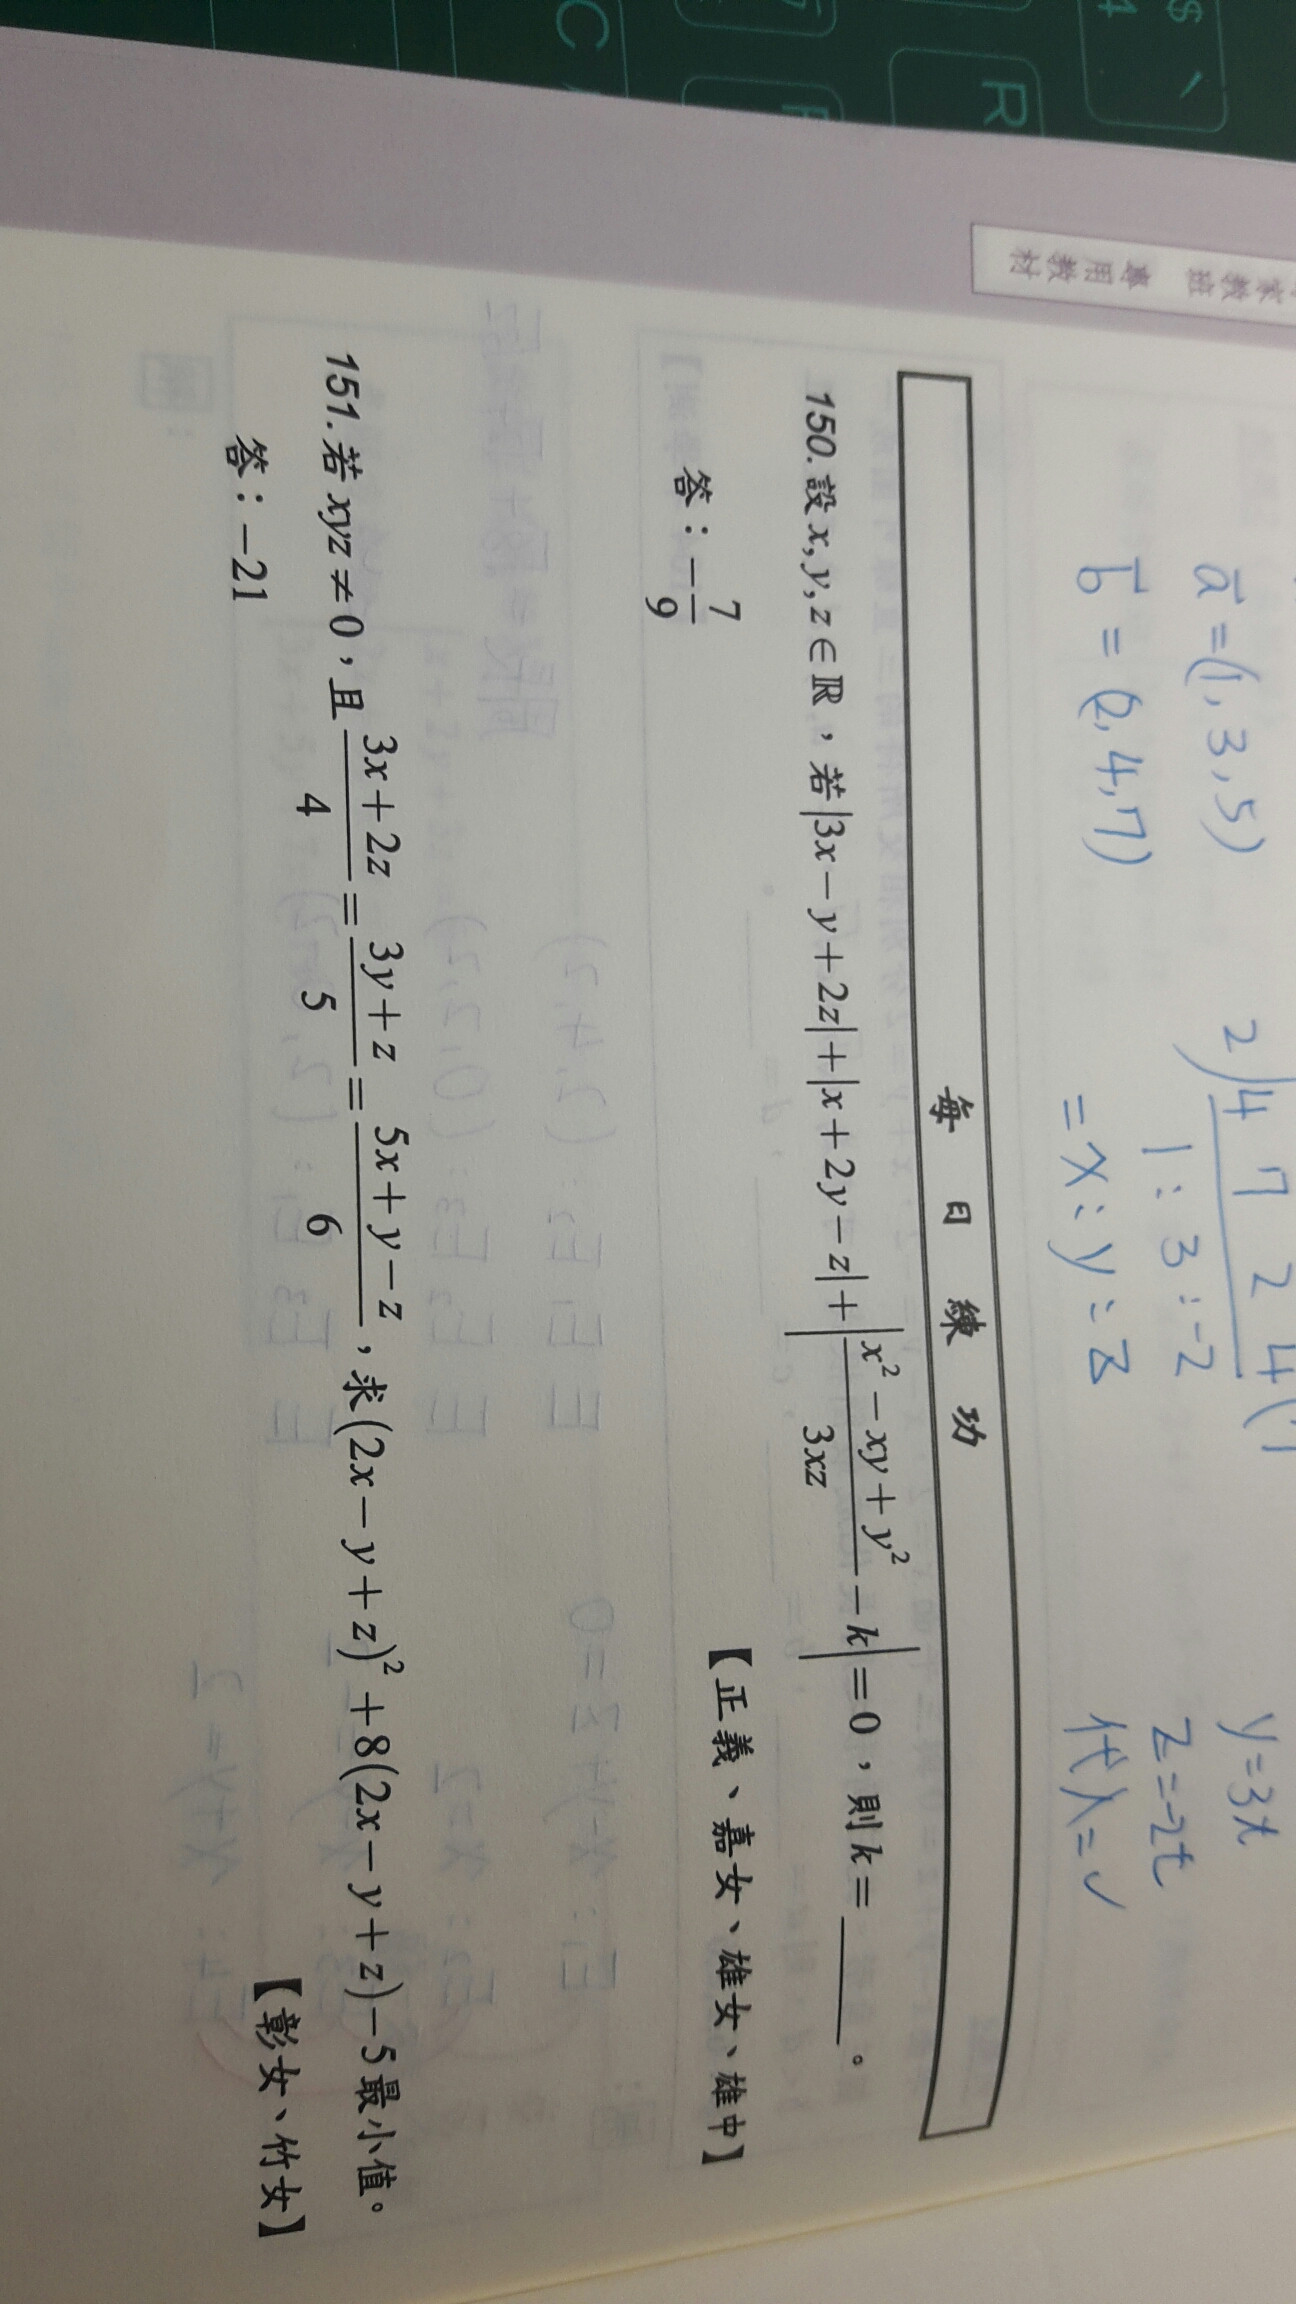 家教班 專用教材
a̅=(1,3,5)
b̅=(2,4,7)
2)4 7 2 4(
1:3:-2
=x:y:z
y=3t
z=-2t
代入=✓
每日練功
150. 設 x, y, z ∈ ℝ，若 |3x−y+2z|+|x+2y−z|+|(x²−xy+y²)/(3xz)−k|=0，則 k=______。
答：−7/9
【正義、嘉女、雄女、雄中】
151. 若 xyz≠0，且 (3x+2z)/4=(3y+z)/5=(5x+y−z)/6，求(2x−y+z)²+8(2x−y+z)−5最小值。
答：−21
【彰女、竹女】
R
C